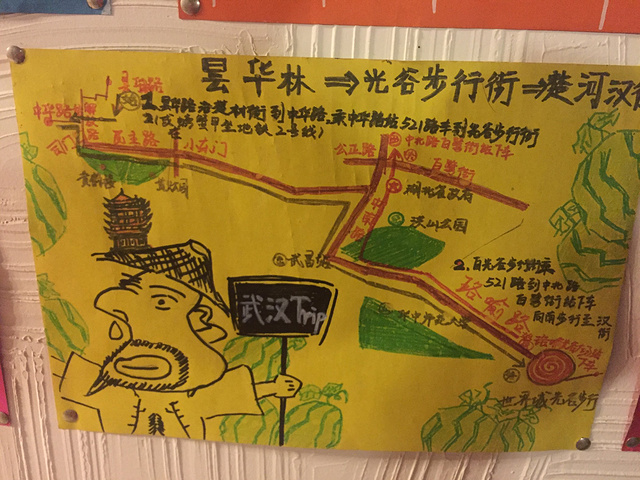 昙华林⇒光谷步行街⇒楚河汉街
昙华林
中华路
1.昙华林沿昙村街到中华路,乘中华路站521路车到光谷步行街
2(或螃蟹甲坐地铁2号线)
司门口
民主路
小东门
黄鹤楼
公正路
中北路百瑞街站下车
百瑞街
湖北省政府
中南路
洪山公园
武昌站
2.自光谷步行街乘
521路到中北路
百瑞街站下车
向南步行至汉街
珞喻路
华中师范大学
武汉Trip
世界城光谷步行